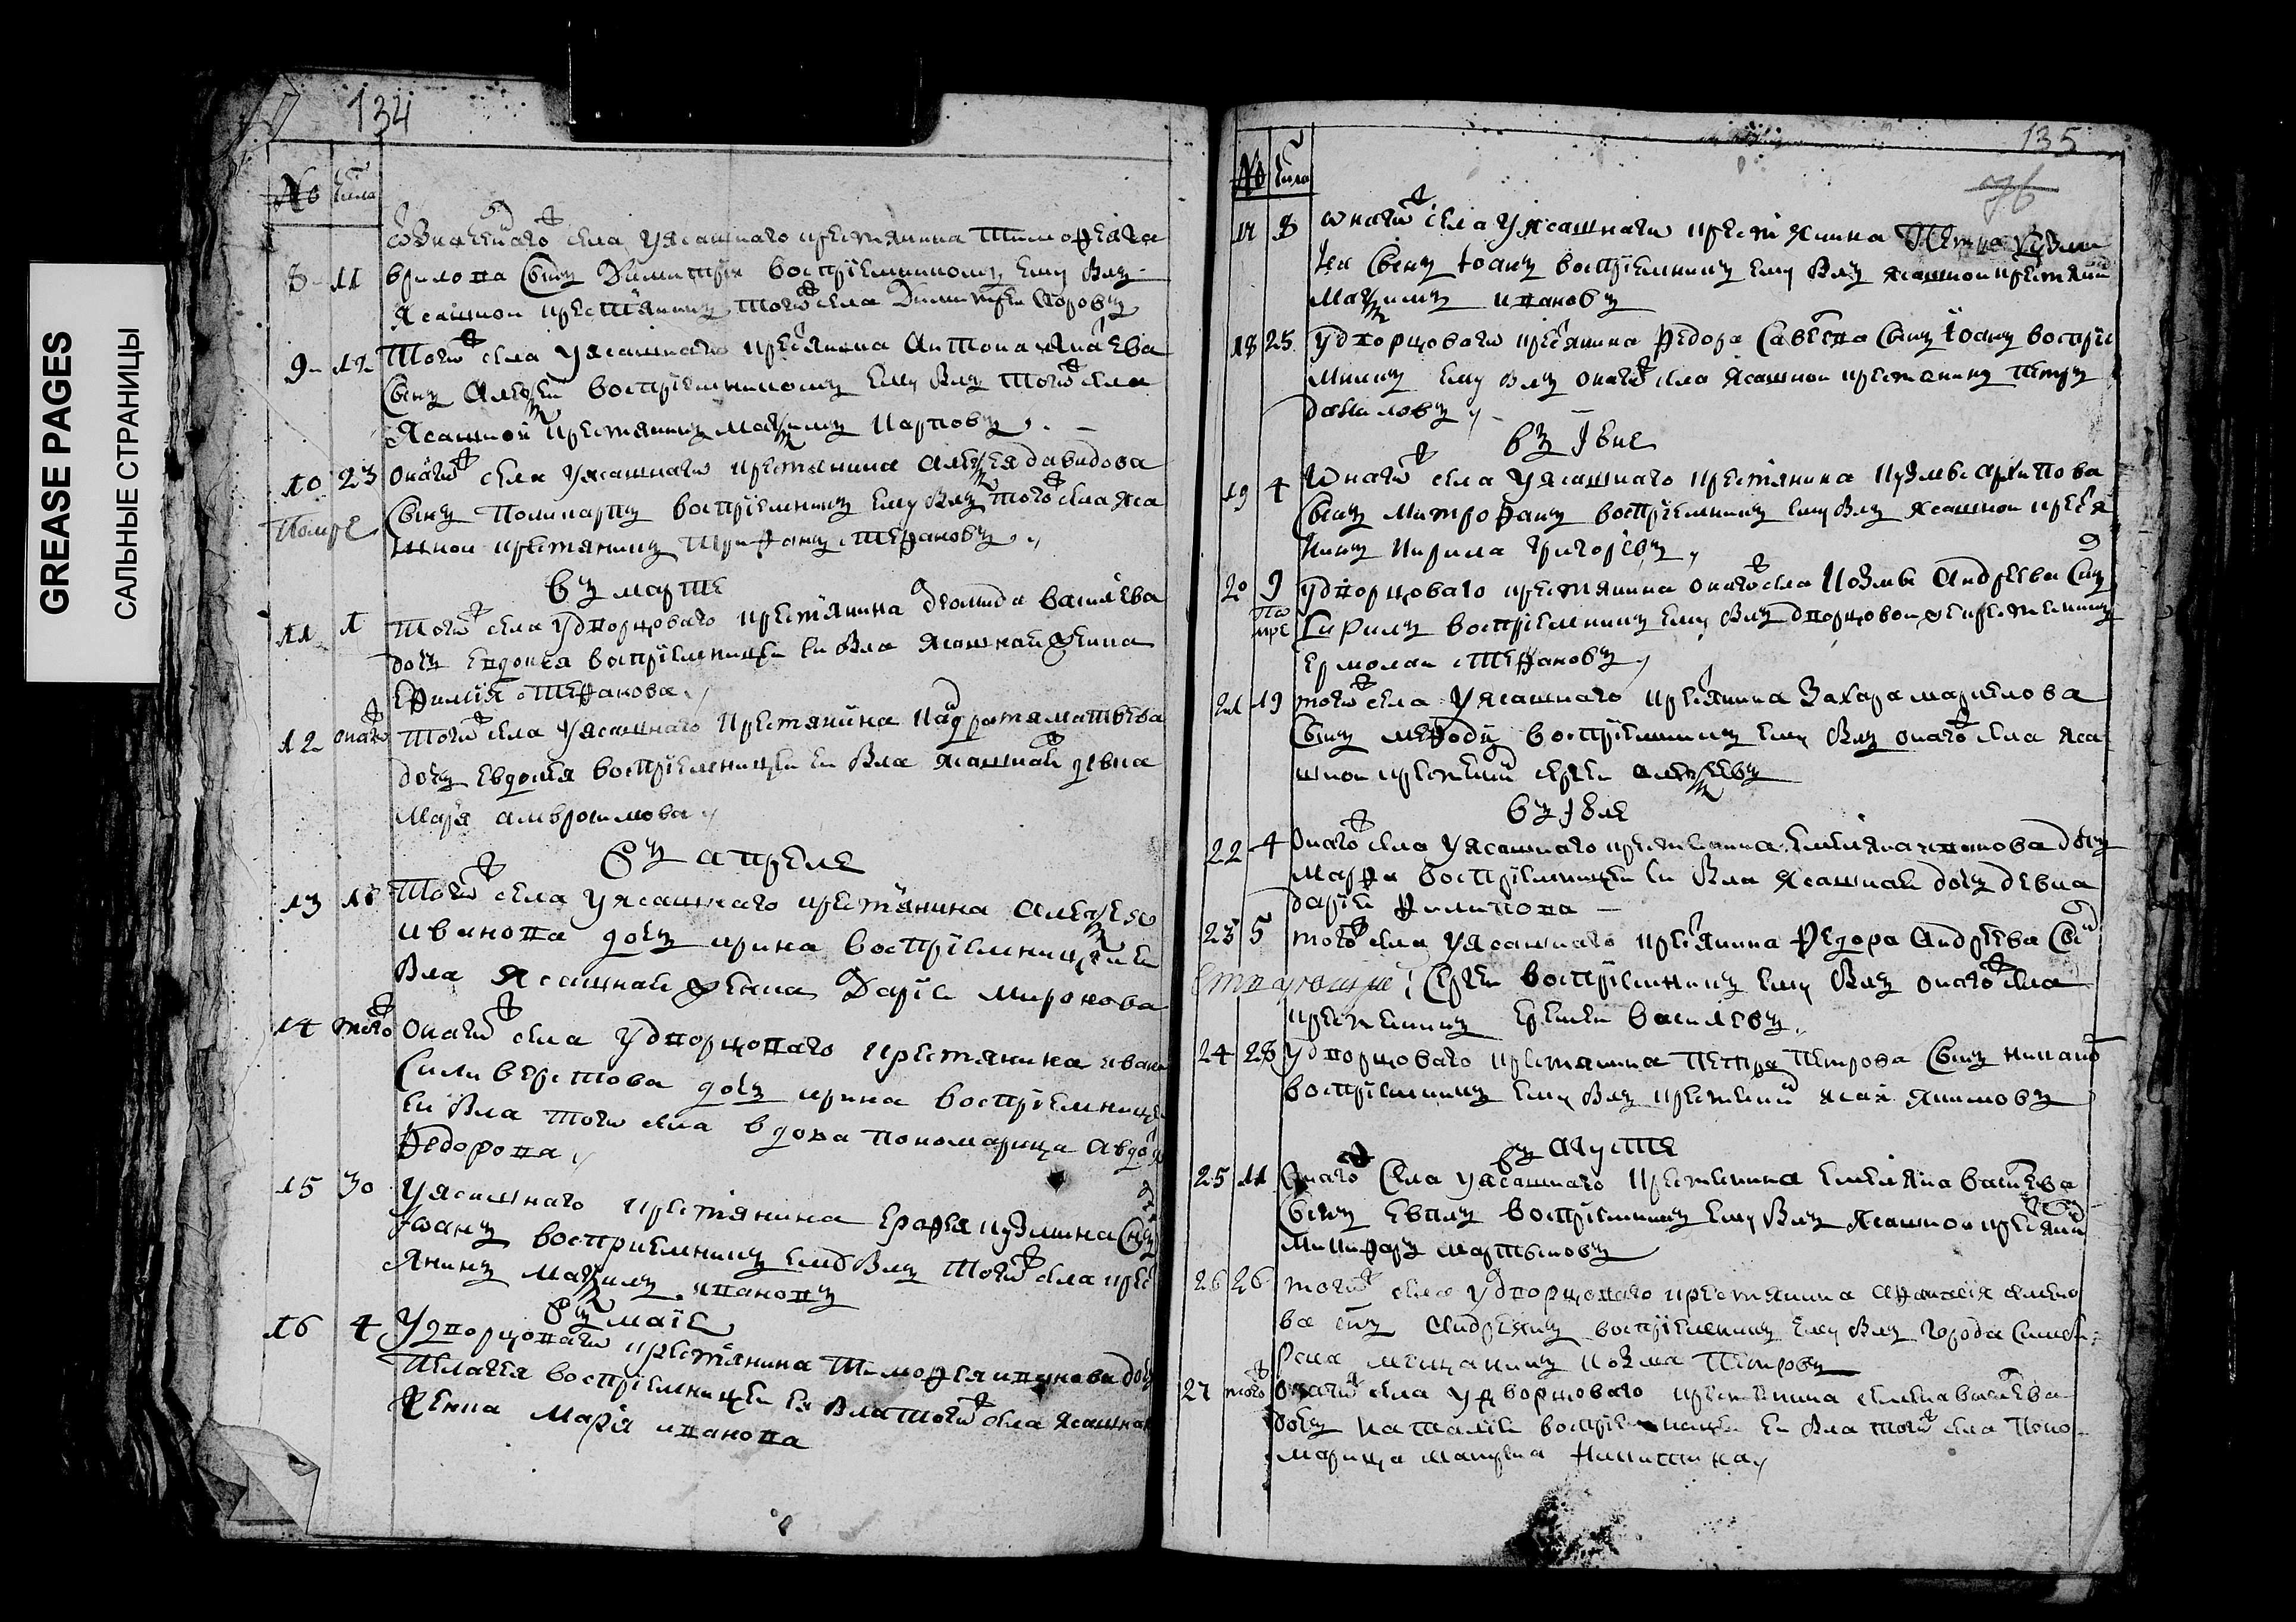 GREASE PAGES
САЛЬНЫЕ СТРАНИЦЫ
134
№ числа
означенаго села уясашнаго крестянина Тимофея Га
8 11 врилова сынъ Димитрiи воспрiемникомъ ему былъ
ясашнои крестянинъ того села Димитреи
9 12 Того села уясашнаго кресянина Антона
сынъ Алеѯеи воспрiемникомъ ему былъ того села
ясашнои крестянинъ Маѯимъ Карповъ
10 23 онаго села уясашнаго крестянина Алеѯея давидова
Помре сынъ Поликарпъ воспрiемникъ ему былъ того села яса
шнои крестянинъ Трифонъ Стефановъ
Въ марте
11 1 того села удворцоваго крестянина васılева
дочь Евдокея воспрiемницеи еи была ясашная жена
Ефимiя Стефанова
12 онаго того села уясашнаго крестянина Кадратя матвева
дочь Евдокея воспрiемницеи еи была ясашная девка
Марiя амвросимова
Въ апреле
13 18 Того села уясашнаго крестянина Алеѯея
иванова дочь ирина воспрiемницеи еи
была ясашнаи жена Дарiя миронова
14 того онаго села удворцоваго крестянина ивана
силиверстова дочь ирина воспрiемницеи
еи была того села вдова пономарица авдоя
Федорова
15 30 уясашнаго крестянина Ерофея кузмина сынъ
Iоанъ восприемникъ ему былъ того села крес
янинъ Маѯимъ ивановъ
Въ маiе
16 4 Удворцоваго крестянина Тимофея иванова дочь
Пелагея воспрiемницеи еи была того села ясашнаи
женка Марiя иванова
135
76
№ числа
17 8 онаго села уясашнаго крестянина Петра Кузми
на сынъ Iоанъ воспрiемникъ ему былъ ясашнои крестянин
Маѯимъ ивановъ
18 25 удворцоваго кресянина Федора Савелева сынъ Iоанъ воспрiе
мникъ ему былъ онаго села ясашнои крестянинъ Петръ
даниловъ
въ Iюне
19 4 онаго села уясашнаго крестянина кузмы архипова
сынъ митрофанъ воспрiемникъ ему былъ ясашнои кресея
нинъ Кирила григорiевъ
20 9 удворцоваго крестянина онаго села Козмы Андреева сынъ
помре Кирилъ воспрiемникъ ему былъ дворцовои же крестянинъ
ермолаи Стефановъ
21 19 того села уясашнаго кресянина Захара маркелова
сынъ мефодiи воспрiемникъ ему былъ онаго села яса
шнои крестянин сергеи алеѯеевъ
въ Iюле
22 4 онаго села уясашнаго крестянина емиляна иванова дочь
марфа воспрiемницеи еи была ясашнаи дочь девка
дарiя филипова
23 5 того села уясашнаго кресянина Федора Андреева сынъ
Сергеи воспрiемникъ ему былъ онаго села
крестянинъ василевъ
24 28 удворцоваго крестянина Петра Петрова сынъ
воспрiемникъ ему былъ крестянин исаи якимовъ
въ Августе
25 11 онаго села уясашнаго крестянина емиляна васılева
сынъ Евплъ воспрiемникъ ему былъ ясашнои кресянин
Никифоръ мартыновъ
26 26 того села удворцоваго крестянина афанасiя семио
ва сынъ Андреянъ воспрiемникъ ему былъ города Симби
рска мещанинъ Козма Петровъ
27 того онаго села удворцоваго крестянина семена васılева
дочь Наталiя воспрiемницеи еи была того села поно
марица матрена Никитина